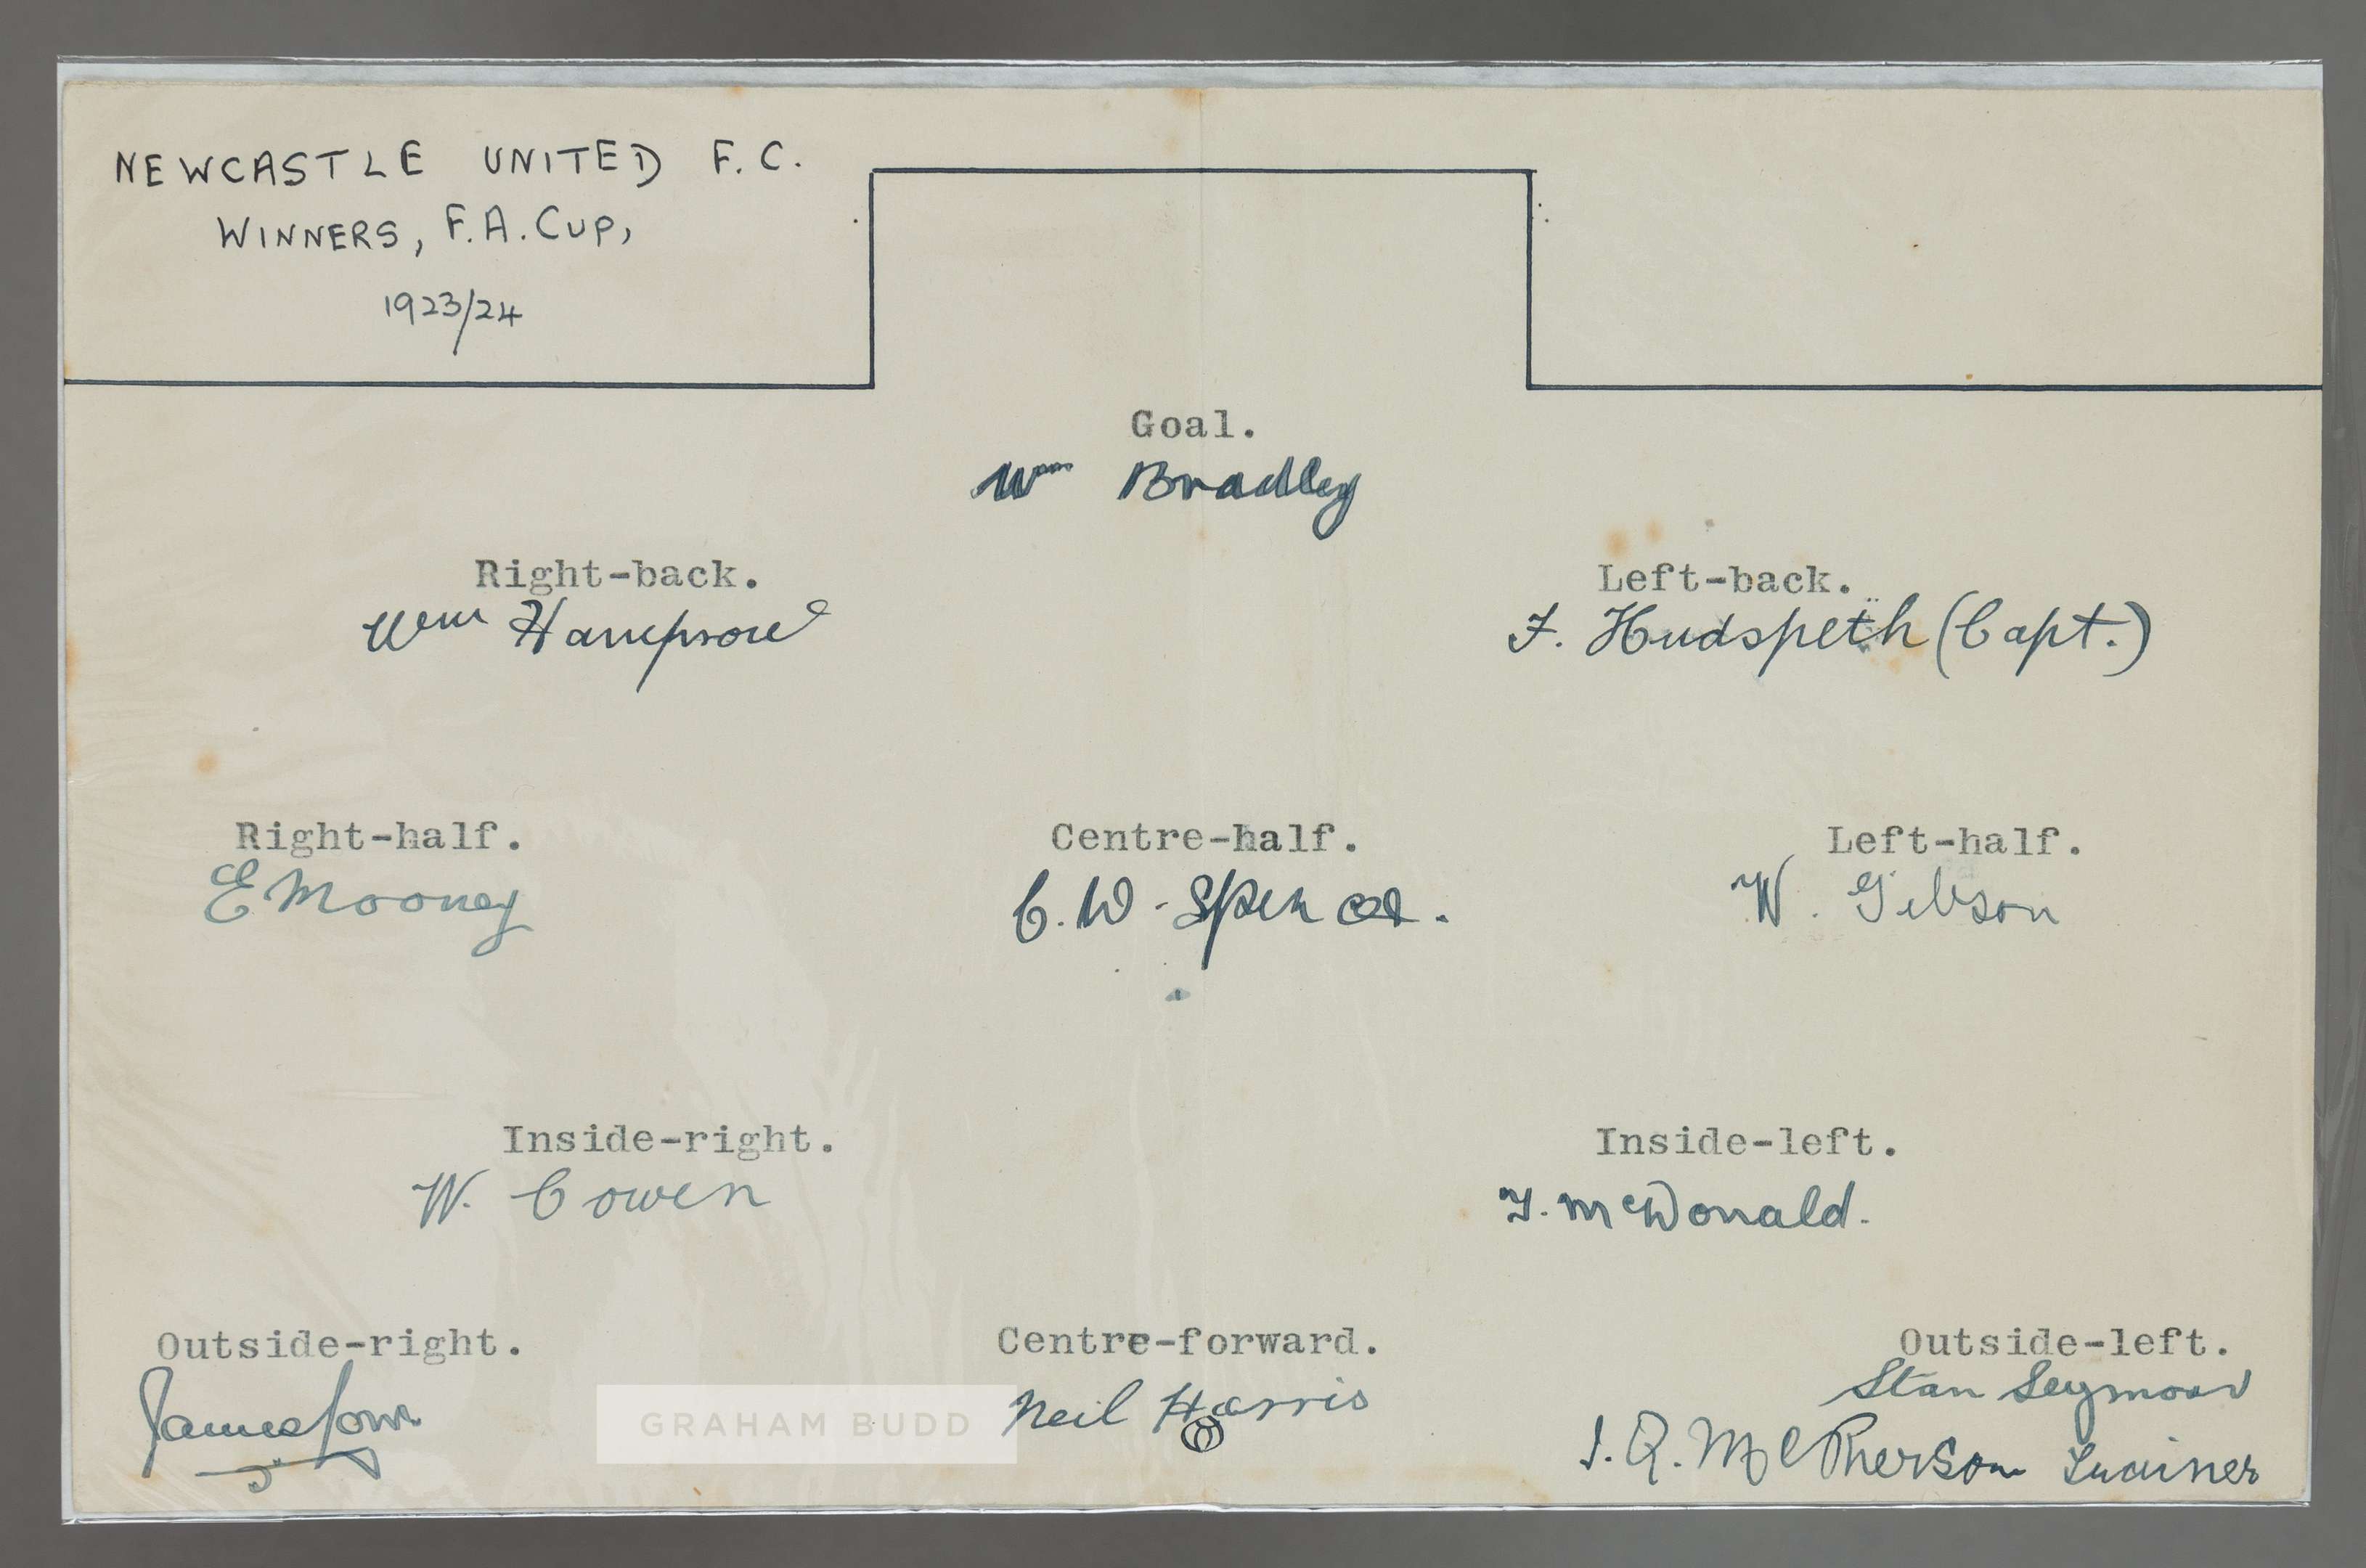 NEWCASTLE UNITED F.C.
WINNERS, F.A. CUP,
1923/24
Goal.
Wm Bradley
Right-back.
Wm Hampson
Left-back.
F. Hudspeth (Capt.)
Right-half.
E Mooney
Centre-half.
C. W. Spencer.
Left-half.
W. Gibson
Inside-right.
W. Cowen
Inside-left.
T. McDonald.
Outside-right.
James Low
Centre-forward.
Neil Harris
Outside-left.
Stan Seymour
J. Q. McPherson Trainer
GRAHAM BUDD